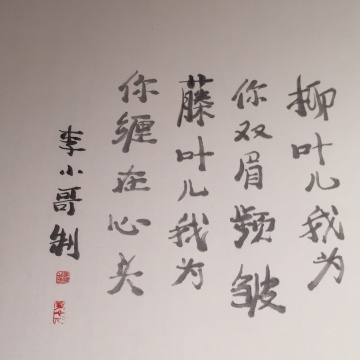 柳叶儿我为
你双眉频皱
藤叶儿我为
你缠在心头
李小哥制